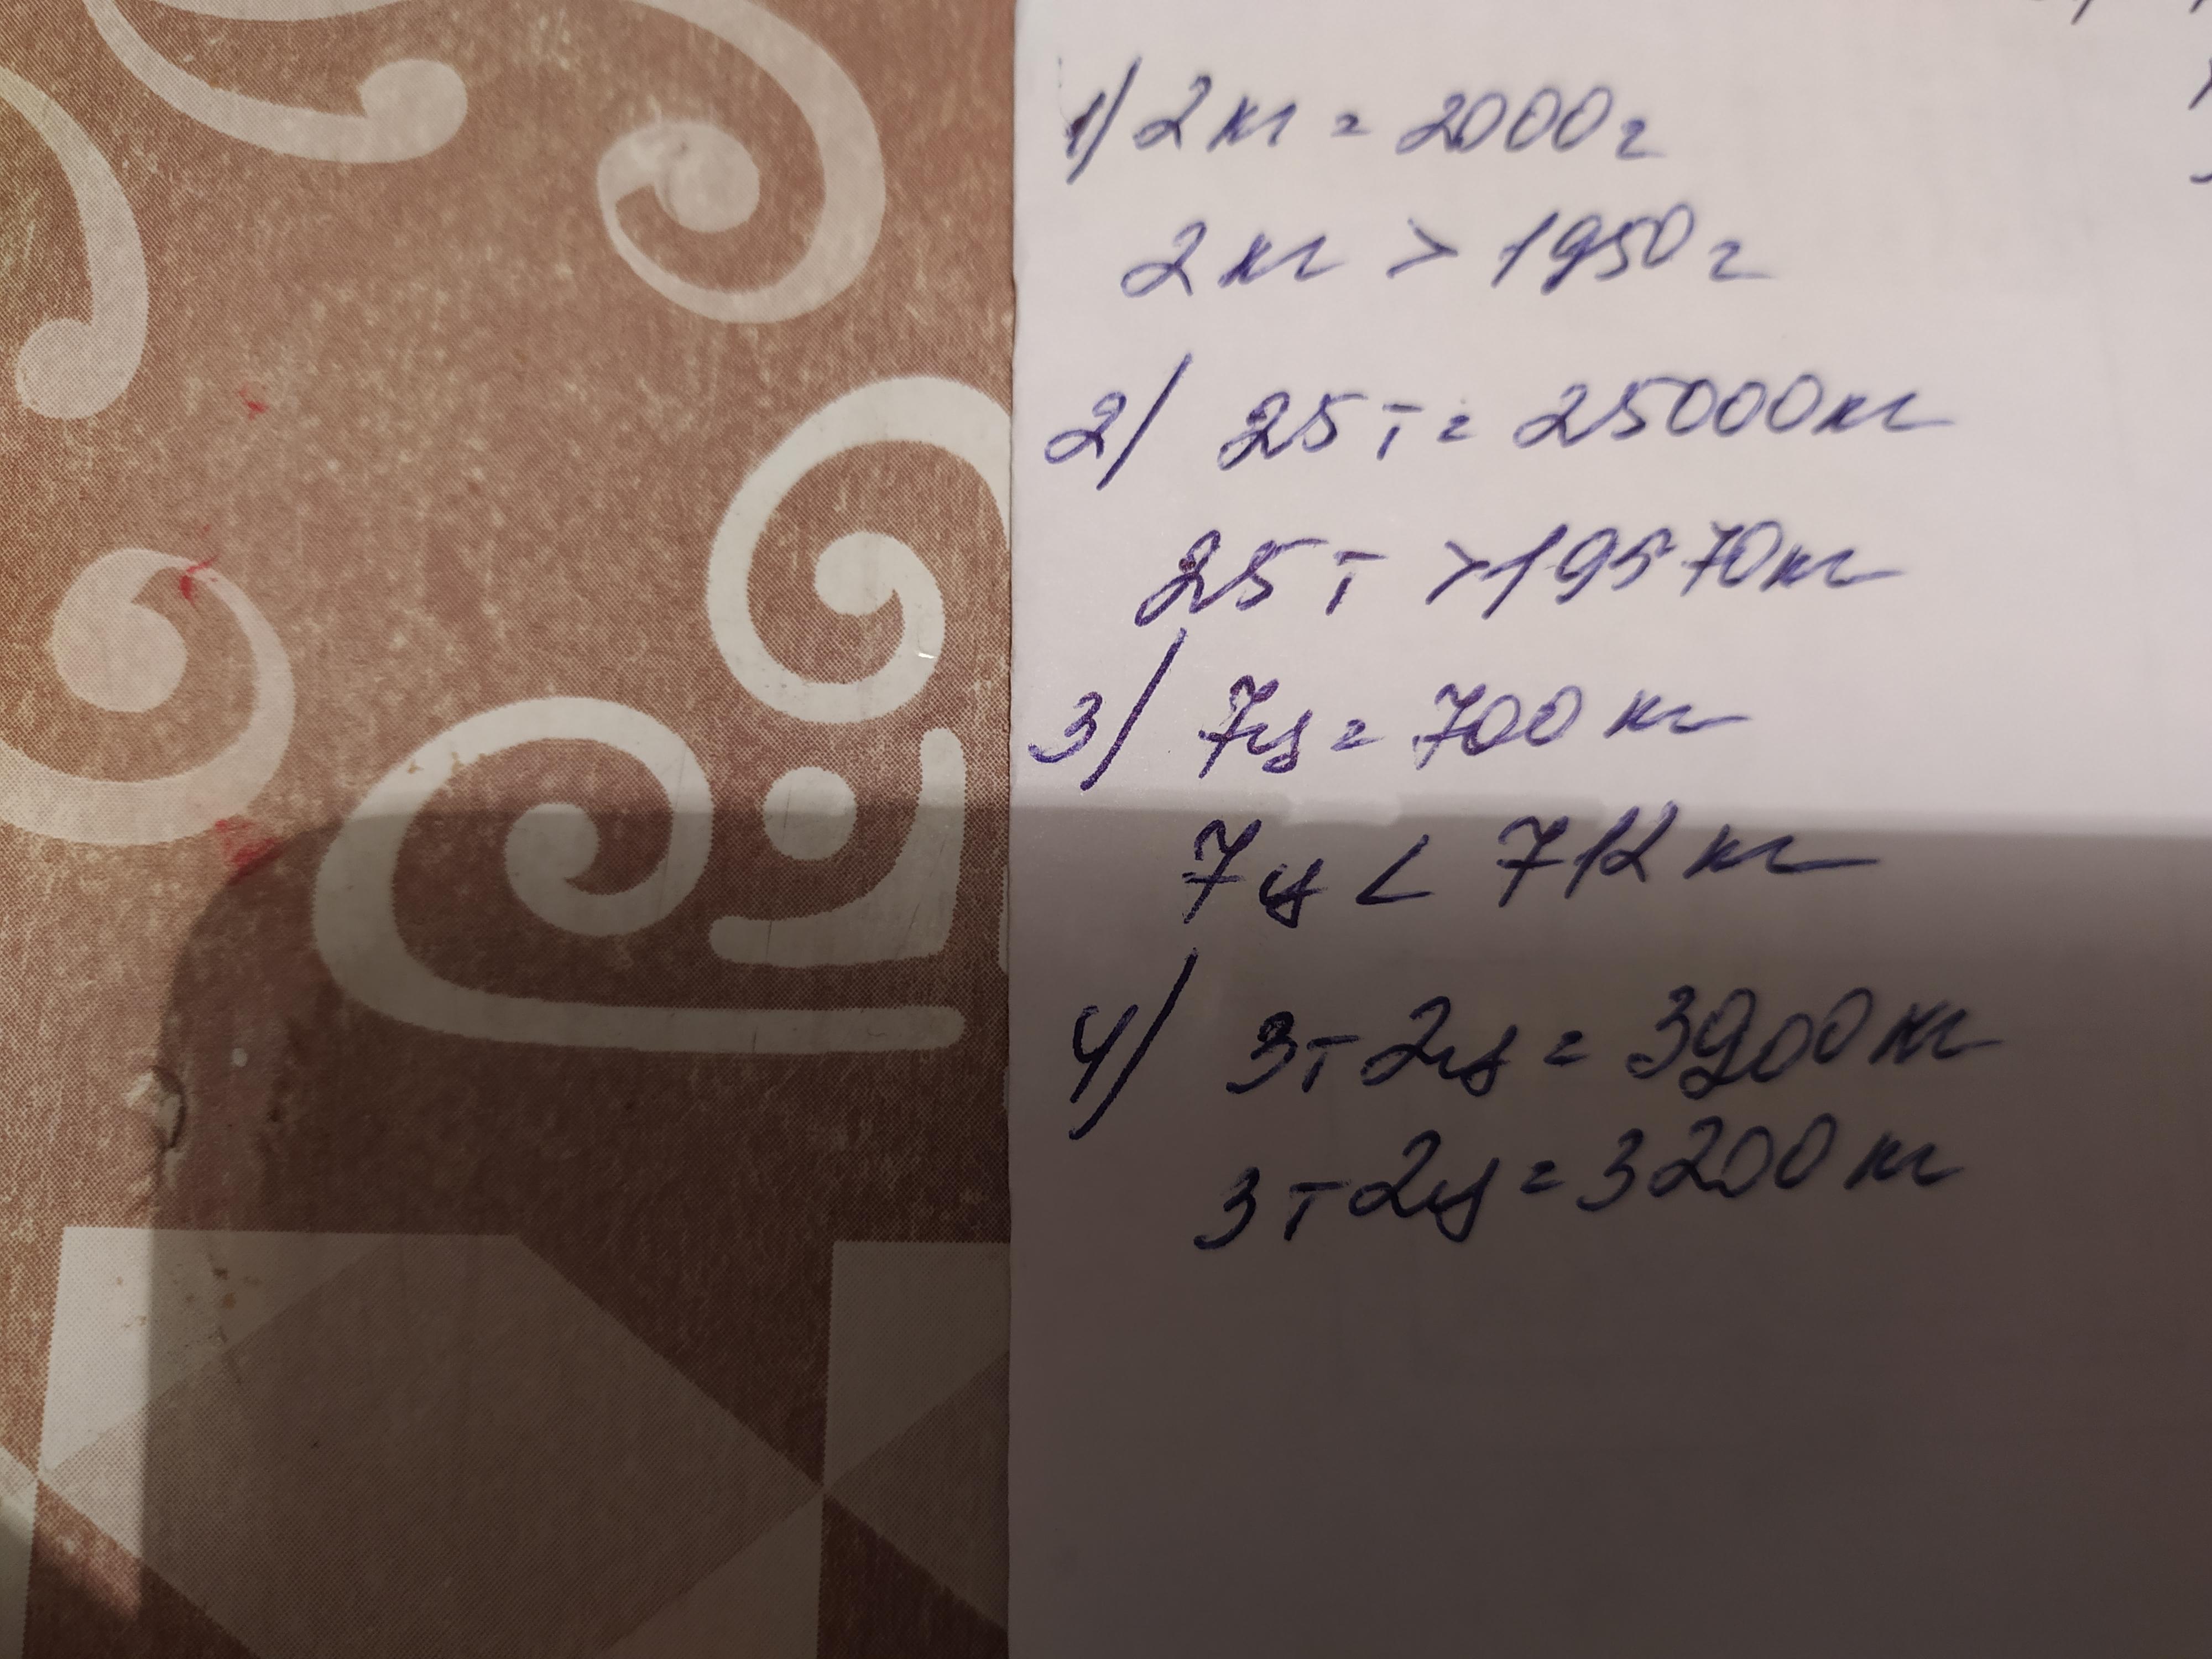 1) 2 кг = 2000 г
2 кг > 1950 г
2) 25 т = 25000 кг
25 т > 19570 кг
3) 7 ц = 700 кг
7 ц < 712 кг
4) 3 т 2 ц = 3200 кг
3 т 2 ц = 3200 кг